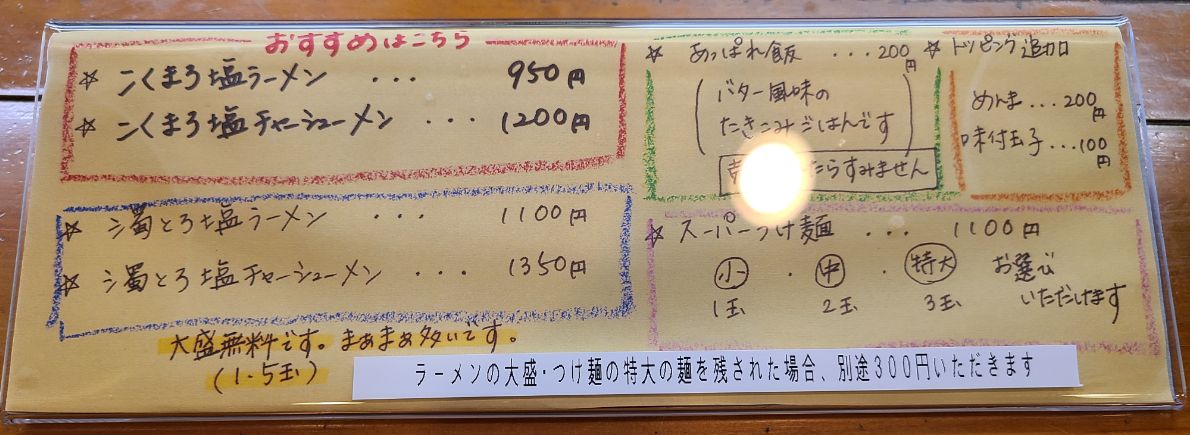 おすすめはこちら
☆ こくまろ塩ラーメン ... 950円
☆ こくまろ塩チャーシューメン ... 1200円
☆ 濁とろ塩ラーメン ... 1100円
☆ 濁とろ塩チャーシューメン ... 1350円
大盛無料です。まあまあ多いです。
(1.5玉)
☆ あっぱれ飯 ... 200円
(バター風味の
たきこみごはんです)
たらすみません
☆ トッピング追加
めんま ... 200円
味付玉子 ... 100円
☆ スーパーつけ麺 .... 1100円
小 ・ 中 ・ 特大 お選び
1玉 2玉 3玉 いただけます
ラーメンの大盛・つけ麺の特大の麺を残された場合、別途300円いただきます